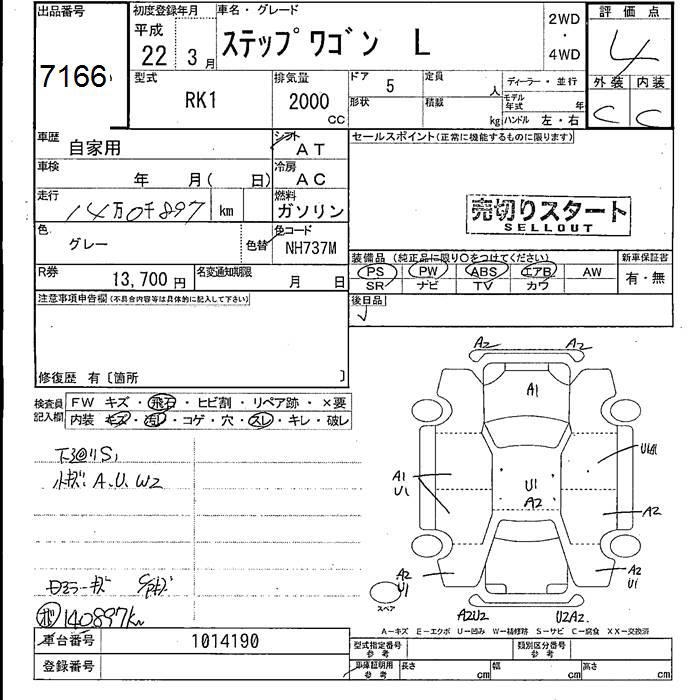 出品番号
7166
初度登録年月
平成
22 3月
車名・グレード
ステップワゴン L
2WD
・
4WD
評価点
4
外装 内装
C C
型式
RK1
排気量
2000
CC
ドア
5
定員
人
形状
積載
kg
ディーラー・並行
モデル
年式
年
ハンドル 左・右
車歴
自家用
シフト
AT
セールスポイント(正常に機能するものに限ります)
車検
年 月( 日)
冷房
AC
走行
14万0千897 km
燃料
ガソリン
売切りスタート
SELLOUT
色
グレー
色替
色コード
NH737M
装備品(純正品に限り○をつけてください)
PS PW ABS エアB AW
SR ナビ TV カワ
新車保証書
有・無
R券
13,700円
名変通知期限
月 日
後日品
注意事項申告欄(不具合内容等は具体的に記入して下さい)
修復歴 有〔箇所 〕
検査員
記入欄
FW キズ・飛石・ヒビ割・リペア跡・×要
内装 キズ・汚れ・コゲ・穴・スレ・キレ・破レ
A、U、W2
140897km
A2 A2
A1
U1
A2
A1
U1
A2
A2
U1
A2
U1
A2U2 U2A2.
スペア
A−キズ E−エクボ U−凹み W−補修跡 S−サビ C−腐食 XX−交換済
車台番号
1014190
登録番号
型式指定番号
参考
類別区分番号
参考
車庫証明用
参考
長さ cm
幅 cm
高さ cm